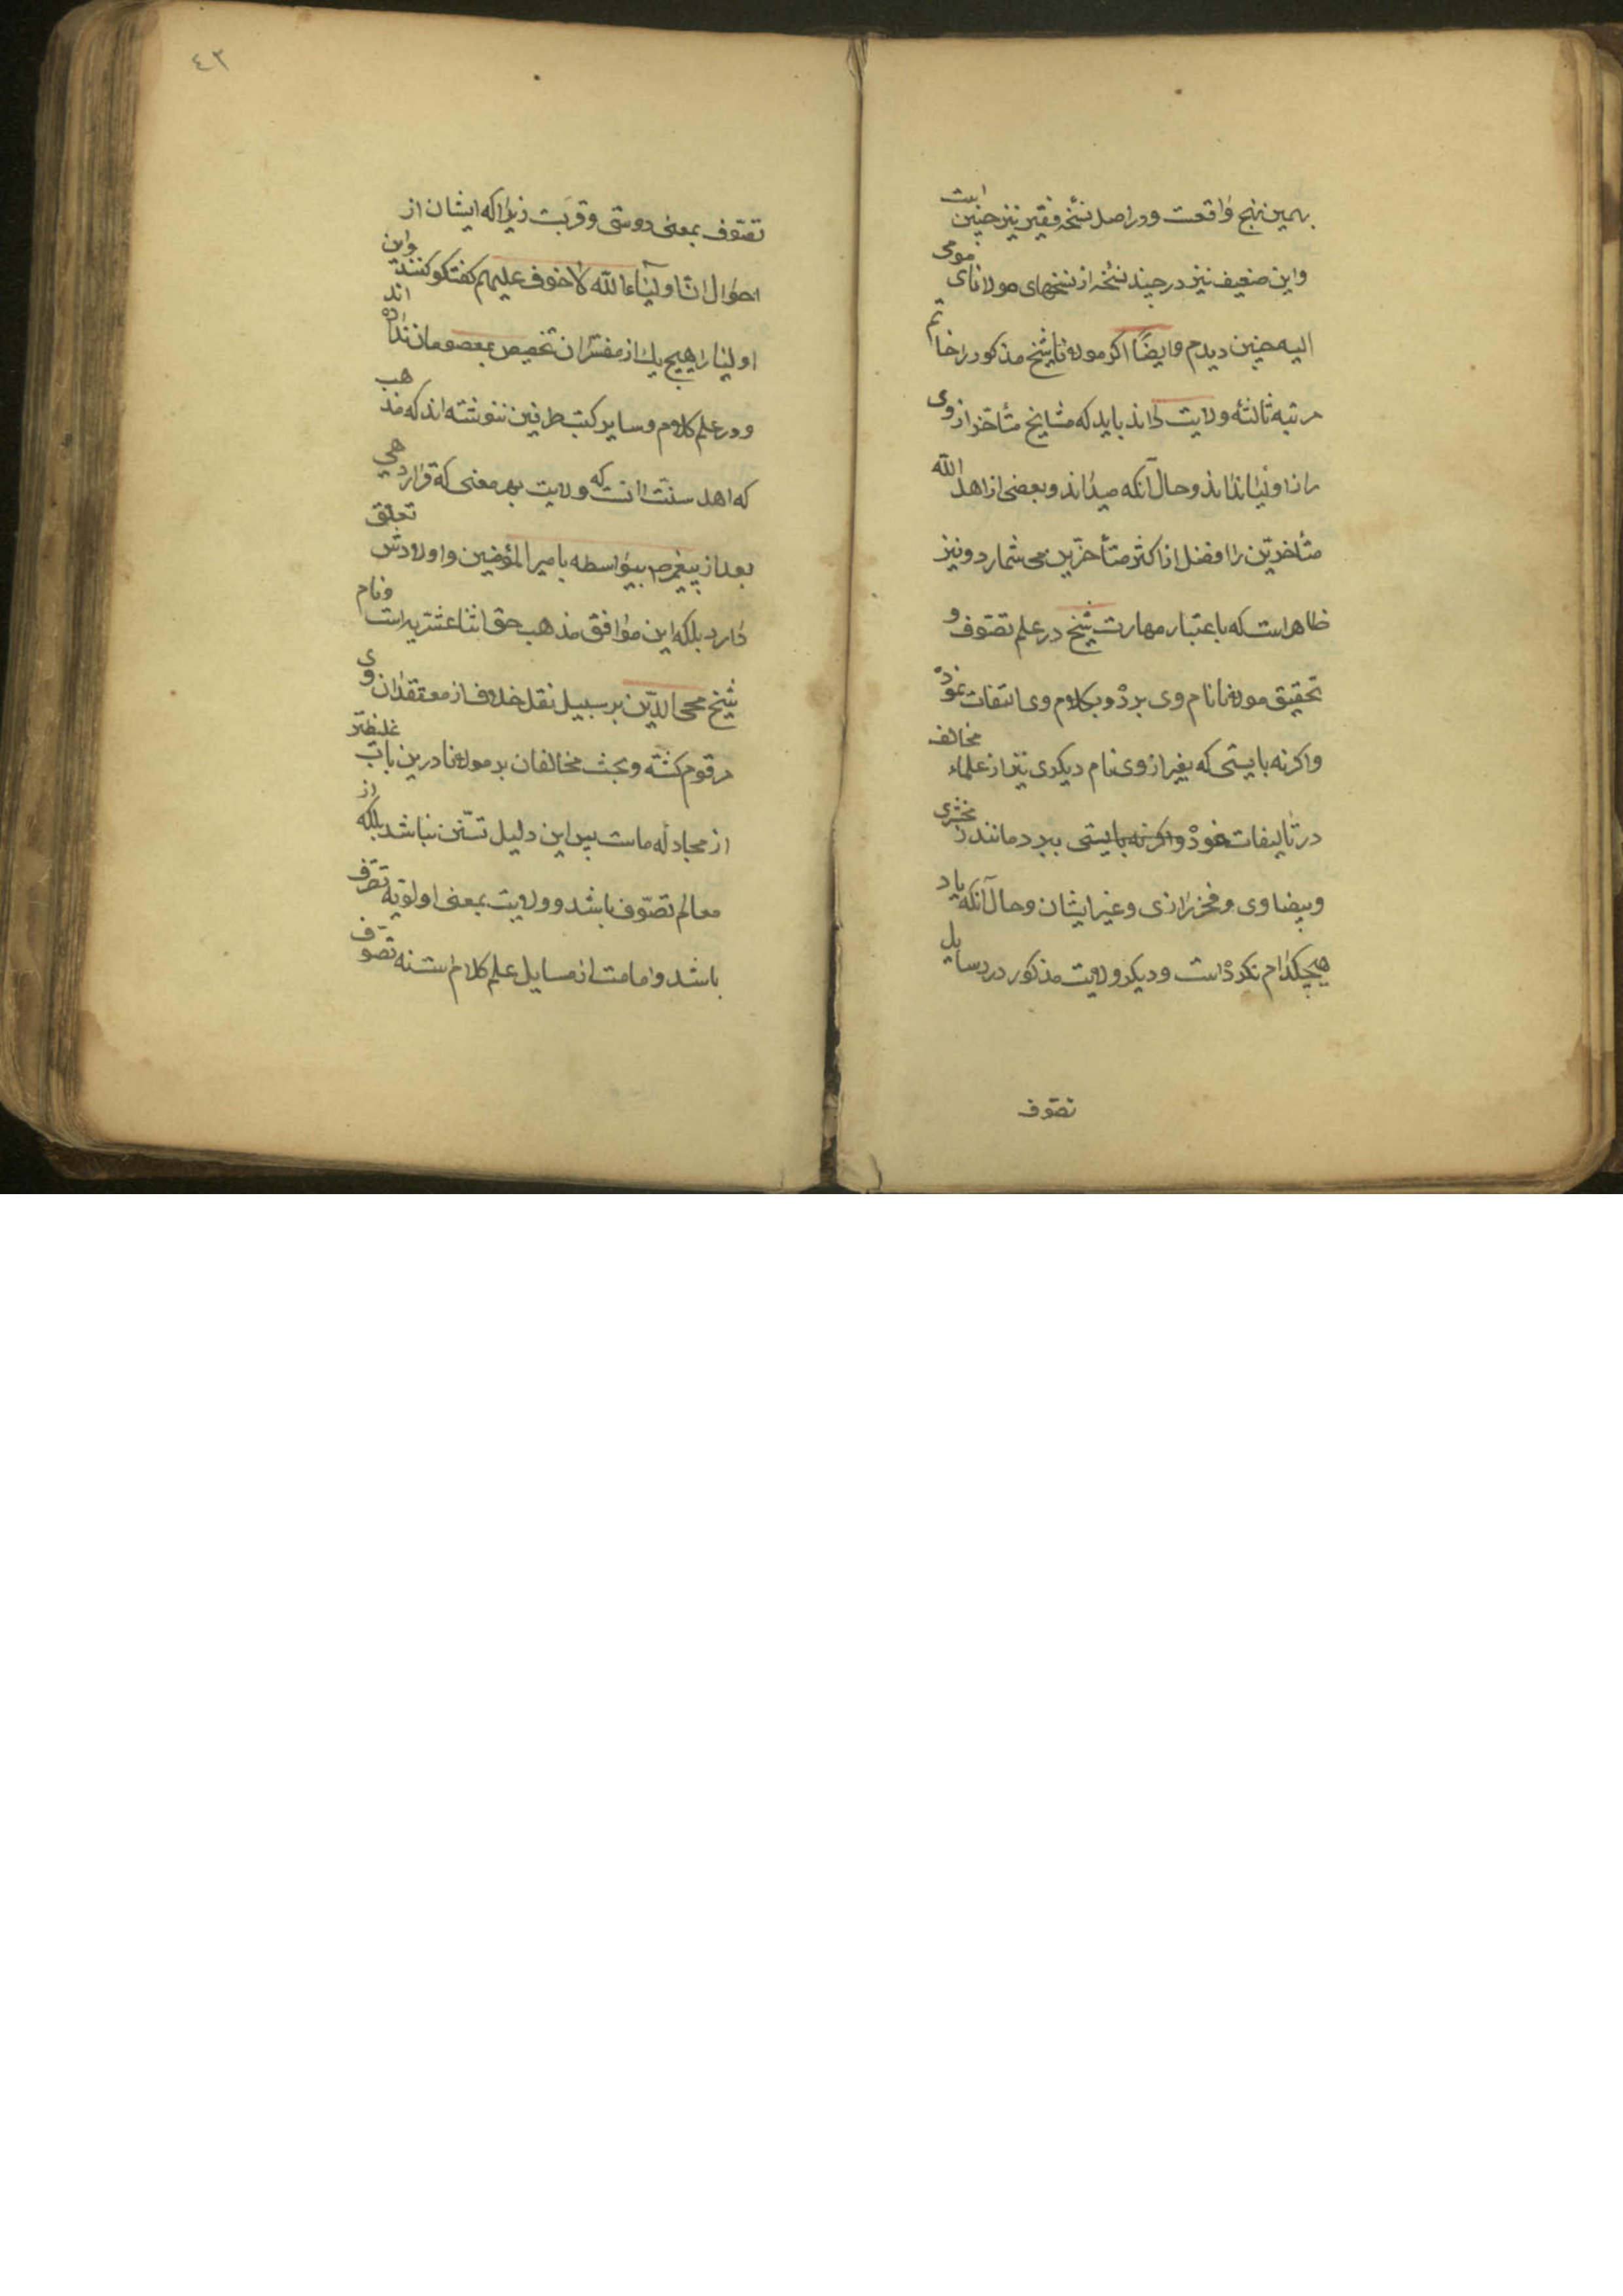 بهمین نهج واقعست و در اصل نسخه فقیر نیز چنین است
و این ضعیف نیز در چند نسخه از نسخهای مولانای مومی
الیه چنین دیدم و ایضاً اکر مولانا شیخ مذکور را خاتم
مرتبه ثالثه ولایت داند باید که مشایخ متأخر از وی
را از اولیا نداند و حال آنکه میداند و بعضی از اهل الله
متأخرین را افضل از اکثر متأخرین می شمارد و نیز
ظاهر است که باعتبار مهارت شیخ در علم تصوف و
تحقیق مولانا نام وی برده و بکلام وی التفات نموده
و اکرنه بایستی که بغیر از وی نام دیکری نیز از علماء مخالف
در تألیفات خود واکرنه بایستی ببرد مانند زمخشری
و بیضاوی و فخر رازی و غیر ایشان و حال آنکه یاد
هیچکدام نکرده است و دیکر ولایت مذکور در رسایل
تصوف
٤٣
تصوف بمعنی دوستی و قربت زیرا که ایشان از
احوال ان اولیاء الله لا خوف علیهم کفتکو کنند و این
اولیا را هیچ یك از مفسران تخصیص بمعصومان نداده اند
و در علم کلام و سایر کتب طرفین ننوشته اند که مذهب
که اهل سنت انست که ولایت بهر معنی که قرار دهی
بعد از پیغمبر ص بیواسطه بامیر المؤمنین و اولادش تعلق
دارد بلکه این موافق مذهب حق اثنا عشریه است و نام
شیخ محی الدین بر سبیل نقل خلاف از معتقدان وی
مرقوم کشته و بحث مخالفان بر مولانا درین باب غلیظتر
از مجادله ماست پس این دلیل تسنن نباشد بلکه از
معالم تصوف باشد و ولایت بمعنی اولویه تصرف
باشد و امامت از مسایل علم کلام است نه تصوف